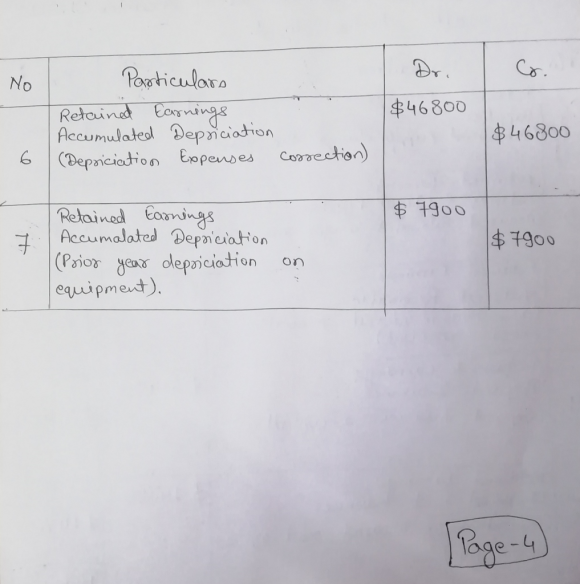 No Particulars Dr. Cr.
Retained Earnings $46800
Accumulated Depriciation $46800
6 (Depriciation Expenses correction)
Retained Earnings $7900
7 Accumalated Depriciation $7900
(Prior year depriciation on
equipment).
Page-4